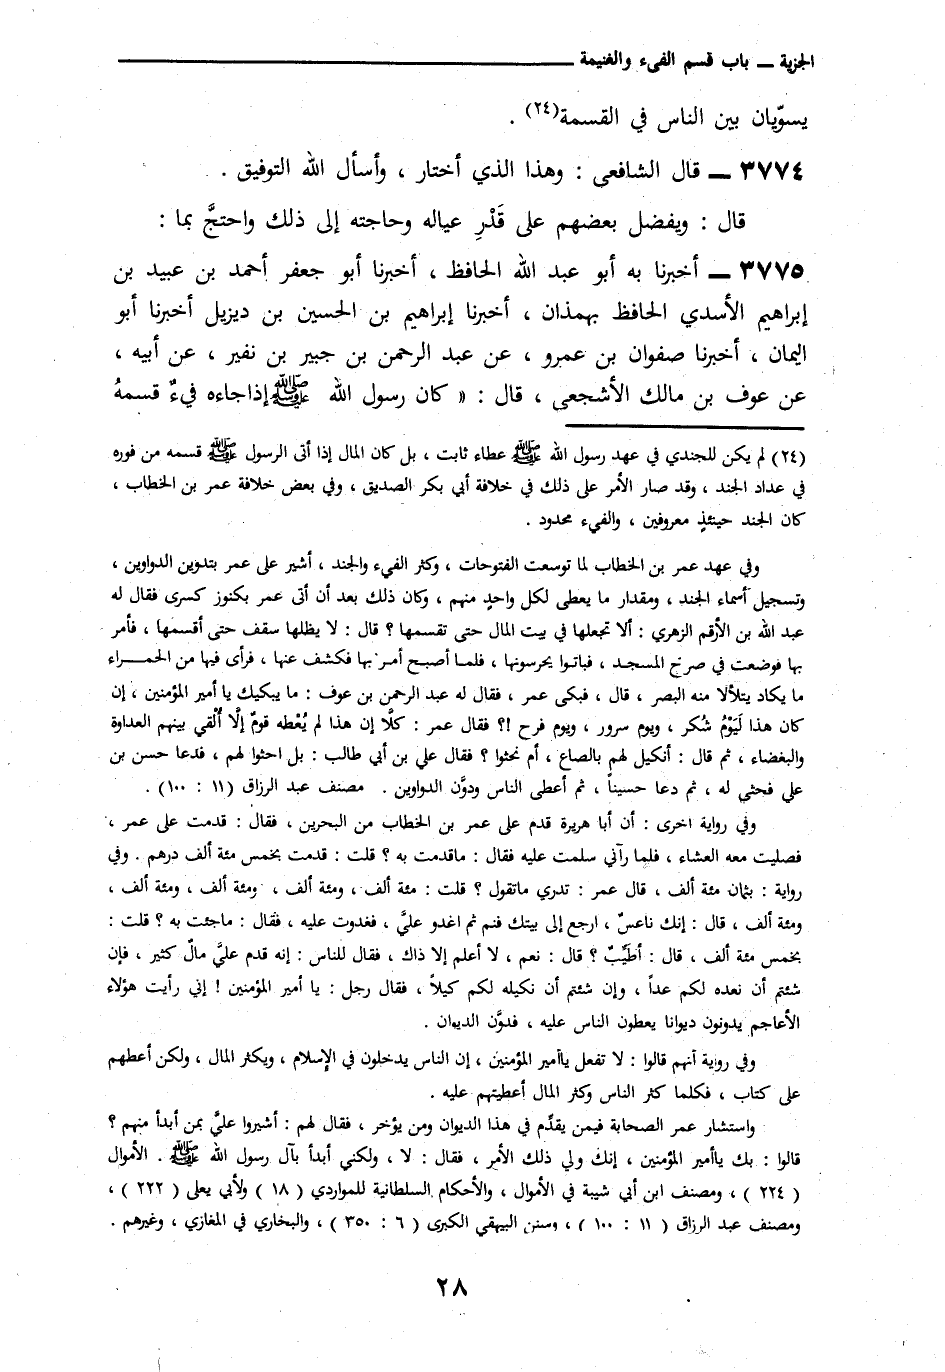 الجزية ــ باب قسم الفىء والغنيمة
يسوّيان بين الناس في القسمة(٢٤) .
٣٧٧٤ ــ قال الشافعى : وهذا الذي أختار ، وأسأل الله التوفيق .
قال : ويفضل بعضهم على قَدْرِ عياله وحاجته إلى ذلك واحتجَّ بما :
٣٧٧٥ ــ أخبرنا به أبو عبد الله الحافظ ، أخبرنا أبو جعفر أحمد بن عبيد بن
إبراهيم الأسدي الحافظ بهمذان ، أخبرنا إبراهيم بن الحسين بن ديزيل أخبرنا أبو
اليمان ، أخبرنا صفوان بن عمرو ، عن عبد الرحمن بن جبير بن نفير ، عن أبيه ،
عن عوف بن مالك الأشجعى ، قال : « كان رسول الله ﷺ إذاجاءه فيءٌ قسمهُ
(٢٤) لم يكن للجندي في عهد رسول الله ﷺ عطاء ثابت ، بل كان المال إذا أتى الرسول ﷺ قسمه من فوره
في عداد الجند ، وقد صار الأمر على ذلك في خلافة أبي بكر الصديق ، وفي بعض خلافة عمر بن الخطاب ،
كان الجند حينئذٍ معروفين ، والفيء محدود .
وفي عهد عمر بن الخطاب لما توسعت الفتوحات ، وكثر الفيء والجند ، أشير على عمر بتدوين الدواوين ،
وتسجيل أسماء الجند ، ومقدار ما يعطى لكل واحدٍ منهم ، وكان ذلك بعد أن أتى عمر بكنوز كسرى فقال له
عبد الله بن الأرقم الزهري : ألا تجعلها في بيت المال حتى تقسمها ؟ قال : لا يظلها سقف حتى أقسمها ، فأمر
بها فوضعت في صرح المسجد ، فباتوا يحرسونها ، فلما أصبح أمر بها فكشف عنها ، فرأى فيها من الحمراء
ما يكاد يتلألأ منه البصر ، قال ، فبكى عمر ، فقال له عبد الرحمن بن عوف : ما يبكيك يا أمير المؤمنين ، إن
كان هذا لَيَوْمُ شُكر ، ويوم سرور ، ويوم فرح !؟ فقال عمر : كلَّا إن هذا لم يُعْطه قومٌ إلَّا أُلْقي بينهم العداوة
والبغضاء ، ثم قال : أنكيل لهم بالصاع ، أم نحثوا ؟ فقال علي بن أبي طالب : بل احثوا لهم ، فدعا حسن بن
علي فحثي له ، ثم دعا حسيناً ، ثم أعطى الناس ودوَّن الدواوين . مصنف عبد الرزاق (١١ : ١٠٠) .
وفي رواية اخرى : أن أبا هريرة قدم على عمر بن الخطاب من البحرين ، فقال : قدمت على عمر ،
فصليت معه العشاء ، فلما رآني سلمت عليه فقال : ماقدمت به ؟ قلت : قدمت بخمس مئة ألف درهم . وفي
رواية : بثمان مئة ألف ، قال عمر : تدري ماتقول ؟ قلت : مئة ألف ، ومئة ألف ، ومئة ألف ، ومئة ألف ،
ومئة ألف ، قال : إنك ناعسٌ ، ارجع إلى بيتك فنم ثم اغدو عليَّ ، فغدوت عليه ، فقال : ماجئت به ؟ قلت :
بخمس مئة ألف ، قال : أطَيِّبٌ ؟ قال : نعم ، لا أعلم إلا ذاك ، فقال للناس : إنه قدم عليَّ مالٌ كثير ، فإن
شئتم أن نعده لكم عداً ، وإن شئتم أن نكيله لكم كيلاً ، فقال رجل : يا أمير المؤمنين ! إني رأيت هؤلاء
الأعاجم يدونون ديوانا يعطون الناس عليه ، فدوَّن الديوان .
وفي رواية أنهم قالوا : لا تفعل ياأمير المؤمنين ، إن الناس يدخلون في الإسلام ، ويكثر المال ، ولكن أعطهم
على كتاب ، فكلما كثر الناس وكثر المال أعطيتهم عليه .
واستشار عمر الصحابة فيمن يقدِّم في هذا الديوان ومن يؤخر ، فقال لهم : أشيروا عليَّ بمن أبدأ منهم ؟
قالوا : بك ياأمير المؤمنين ، إنك ولي ذلك الأمر ، فقال : لا ، ولكني أبدأ بآل رسول الله ﷺ . الأموال
( ٢٢٤ ) ، ومصنف ابن أبي شيبة في الأموال ، والأحكام السلطانية للمواردي ( ١٨ ) ولأبي يعلى ( ٢٢٢ ) ،
ومصنف عبد الرزاق ( ١١ : ١٠٠ ) ، وسنن البيهقي الكبرى ( ٦ : ٣٥٠ ) ، والبخاري في المغازي ، وغيرهم .
٢٨